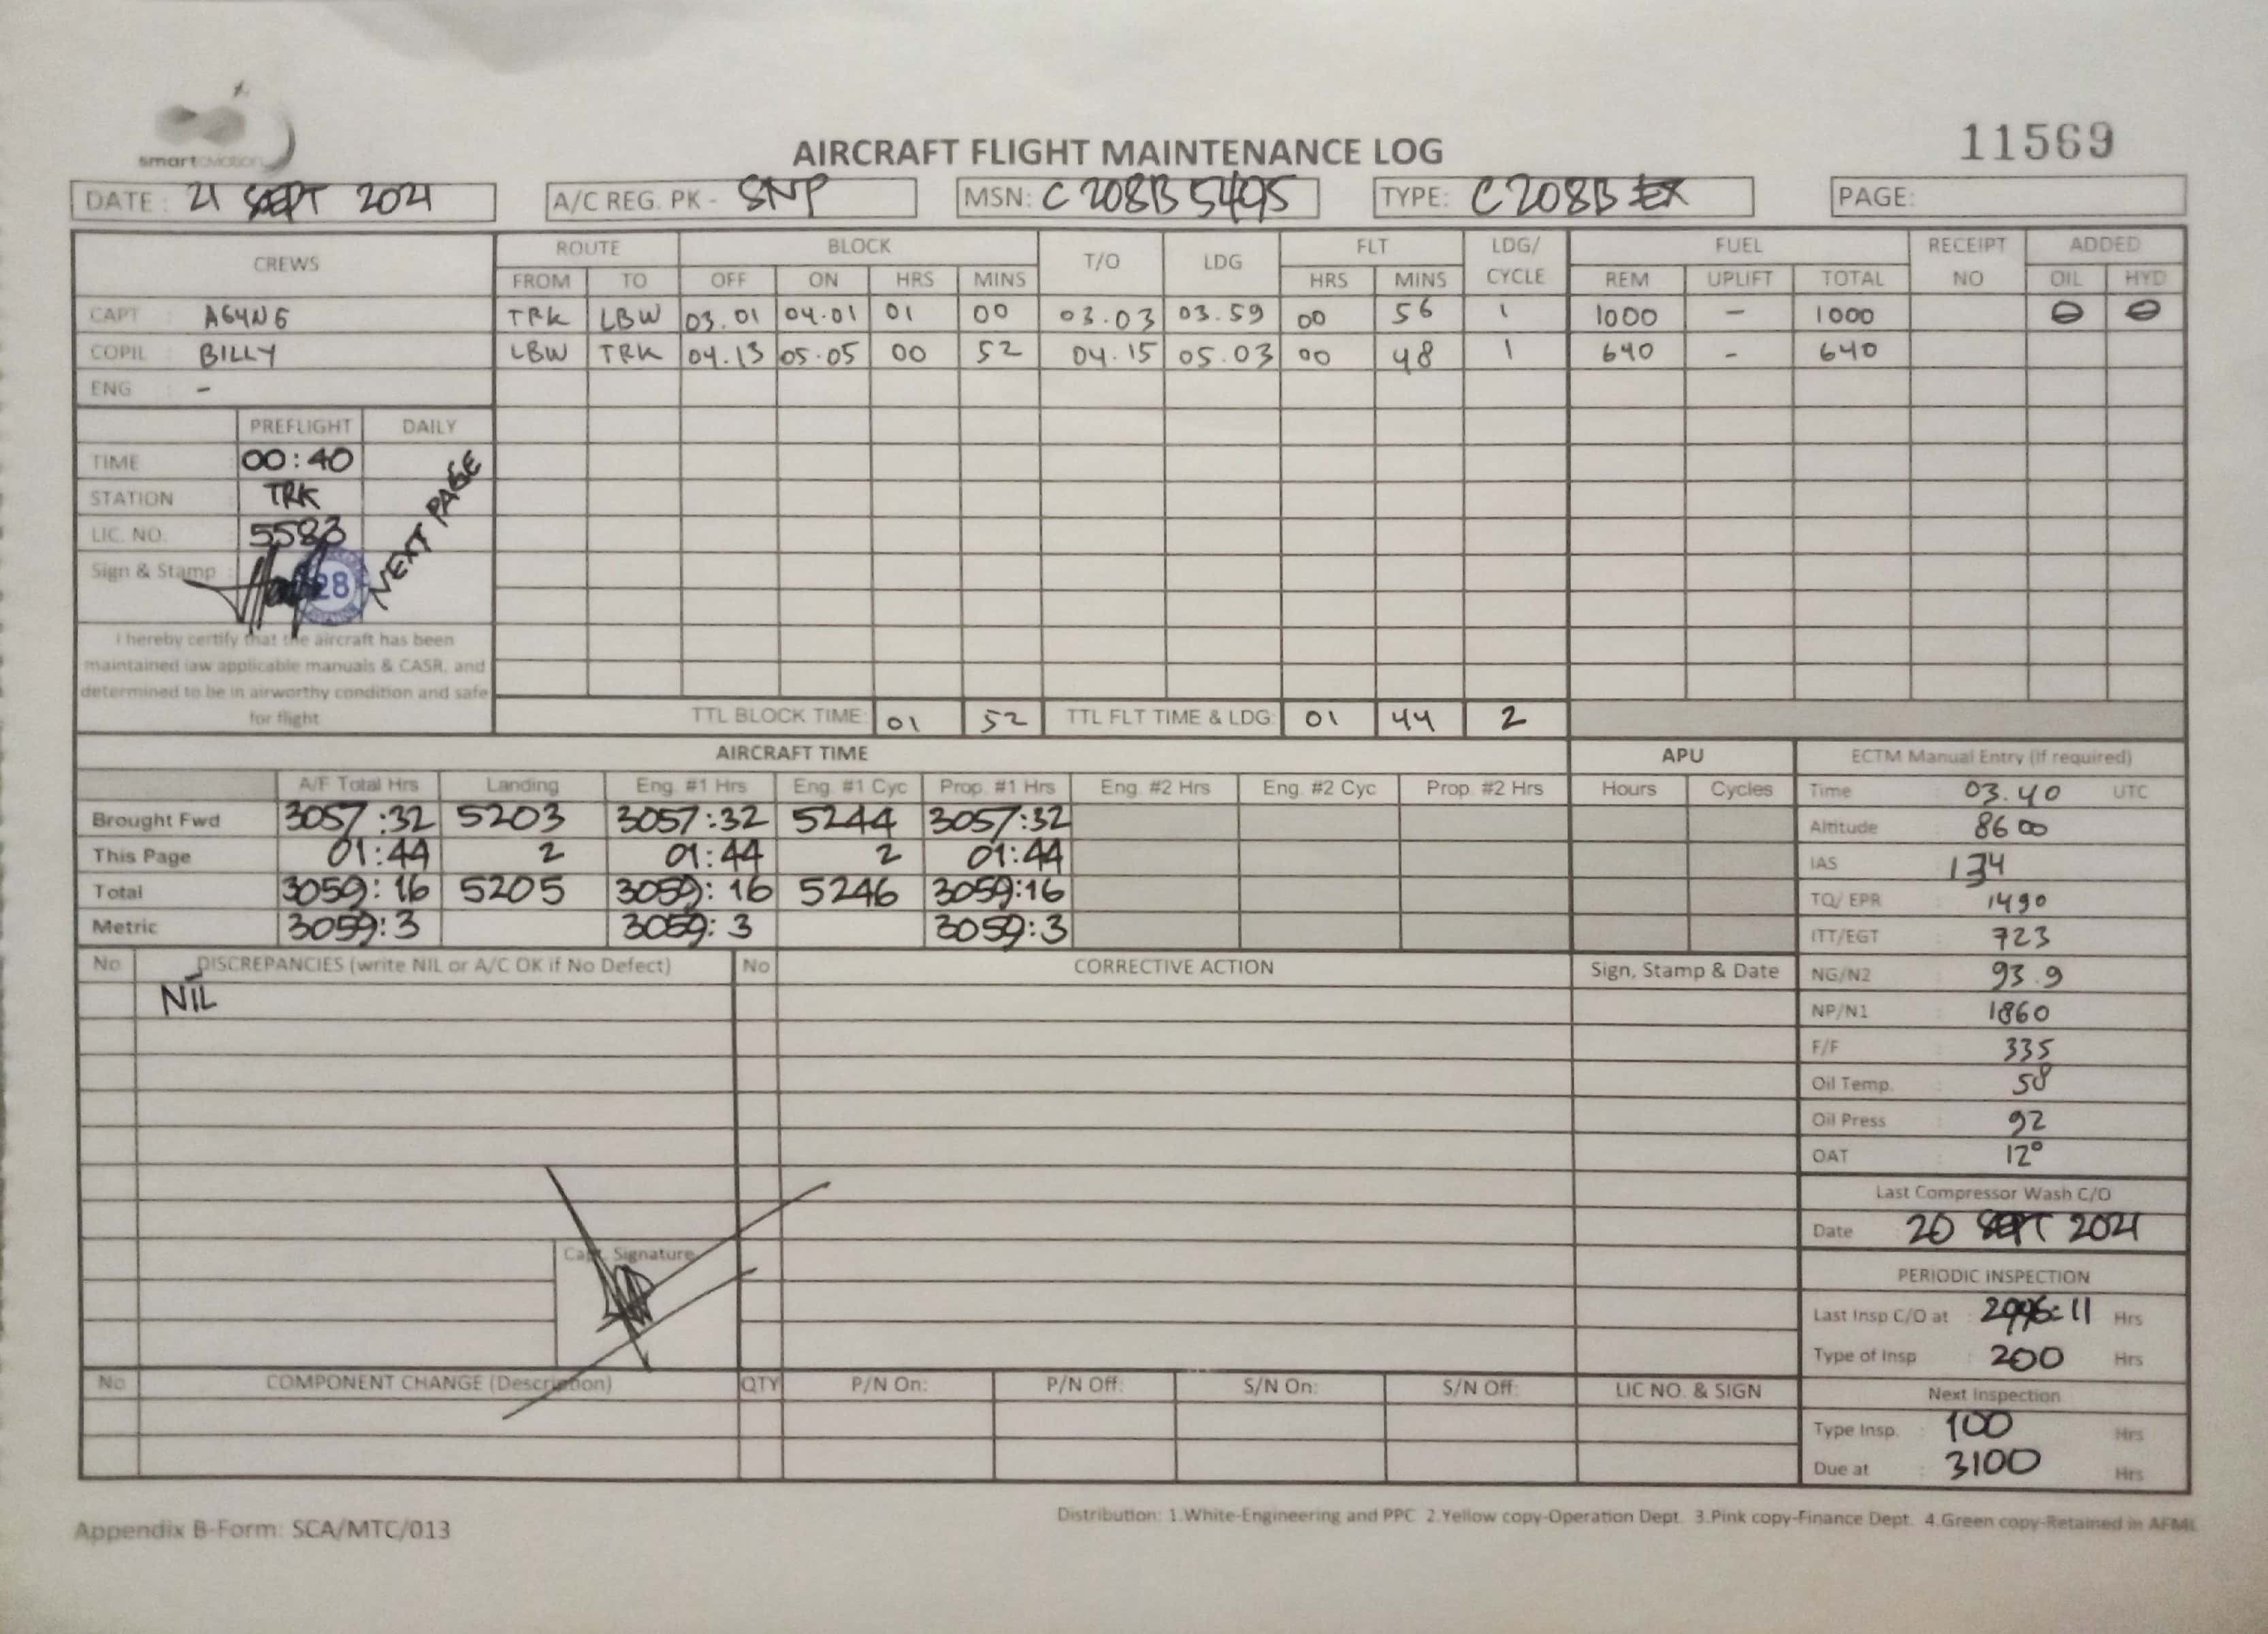 smart aviation
AIRCRAFT FLIGHT MAINTENANCE LOG
11569
DATE : 21 SEPT 2021 A/C REG. PK - SNP MSN: C 208B 5495 TYPE: C208B EX PAGE:
CREWS ROUTE BLOCK T/O LDG FLT LDG/ CYCLE FUEL RECEIPT NO ADDED
FROM TO OFF ON HRS MINS HRS MINS REM UPLIFT TOTAL OIL HYD
CAPT : AGUNG TRK LBW 03.01 04.01 01 00 03.03 03.59 00 56 1 1000 - 1000 0 0
COPIL : BILLY LBW TRK 04.13 05.05 00 52 04.15 05.03 00 48 1 640 - 640
ENG : -
PREFLIGHT DAILY
TIME : 00:40
STATION : TRK
LIC. NO. : 5583
NEXT PAGE
Sign & Stamp :
28
I hereby certify that the aircraft has been
maintained iaw applicable manuals & CASR, and
determined to be in airworthy condition and safe
for flight
TTL BLOCK TIME: 01 52 TTL FLT TIME & LDG: 01 44 2
AIRCRAFT TIME APU ECTM Manual Entry (If required)
A/F Total Hrs Landing Eng. #1 Hrs Eng. #1 Cyc Prop. #1 Hrs Eng. #2 Hrs Eng. #2 Cyc Prop. #2 Hrs Hours Cycles
Brought Fwd 3057:32 5203 3057:32 5244 3057:32
This Page 01:44 2 01:44 2 01:44
Total 3059:16 5205 3059:16 5246 3059:16
Metric 3059:3 3059:3 3059:3
Time : 03.40 UTC
Altitude : 8600
IAS : 134
TQ/ EPR : 1490
ITT/EGT : 723
NG/N2 : 93.9
NP/N1 : 1860
F/F : 335
Oil Temp. : 58
Oil Press : 92
OAT : 12°
No DISCREPANCIES (write NIL or A/C OK if No Defect) No CORRECTIVE ACTION Sign, Stamp & Date
NIL
Capt. Signature
Last Compressor Wash C/O
Date 20 SEPT 2021
PERIODIC INSPECTION
Last Insp C/O at : 2996:11 Hrs
Type of Insp : 200 Hrs
Next Inspection
Type Insp. : 100 Hrs
Due at : 3100 Hrs
No COMPONENT CHANGE (Description) QTY P/N On: P/N Off: S/N On: S/N Off: LIC NO. & SIGN
Appendix B-Form: SCA/MTC/013
Distribution: 1.White-Engineering and PPC 2.Yellow copy-Operation Dept. 3.Pink copy-Finance Dept. 4.Green copy-Retained in AFML